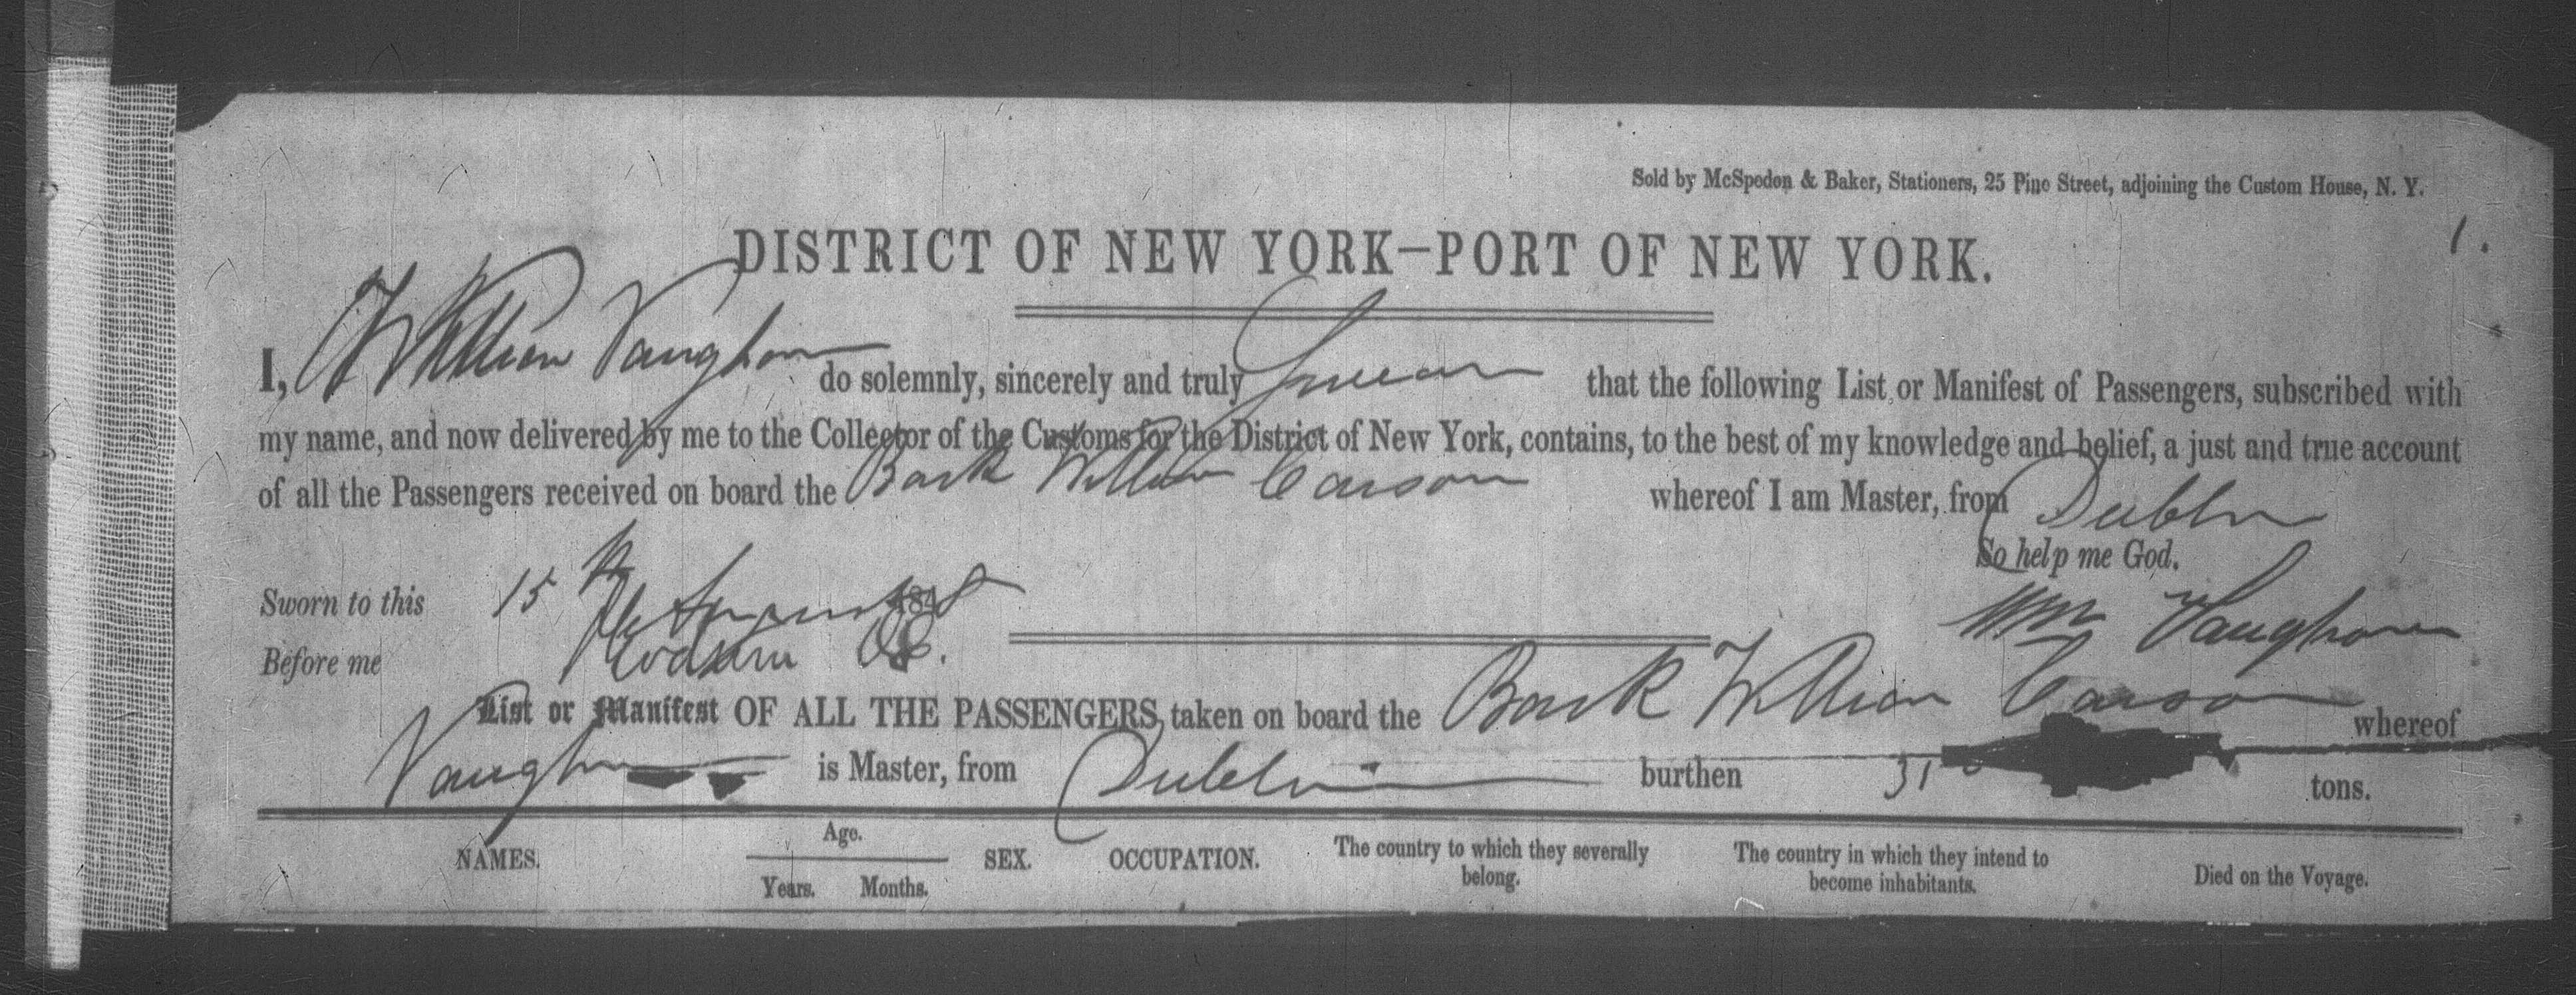 Sold by McSpedon & Baker, Stationers, 25 Pine Street, adjoining the Custom House, N. Y.
1.
DISTRICT OF NEW YORK—PORT OF NEW YORK.
I, William Vaughan do solemnly, sincerely and truly swear that the following List or Manifest of Passengers, subscribed with
my name, and now delivered by me to the Collector of the Customs for the District of New York, contains, to the best of my knowledge and belief, a just and true account
of all the Passengers received on board the Bark William Carson whereof I am Master, from Dublin
So help me God.
Sworn to this 15th 1848
Wm Vaughan
Before me
List or Manifest OF ALL THE PASSENGERS taken on board the Bark William Carson whereof
Vaughan is Master, from Dublin burthen 31 tons.
NAMES. Age. Years. Months. SEX. OCCUPATION. The country to which they severally belong. The country in which they intend to become inhabitants. Died on the Voyage.